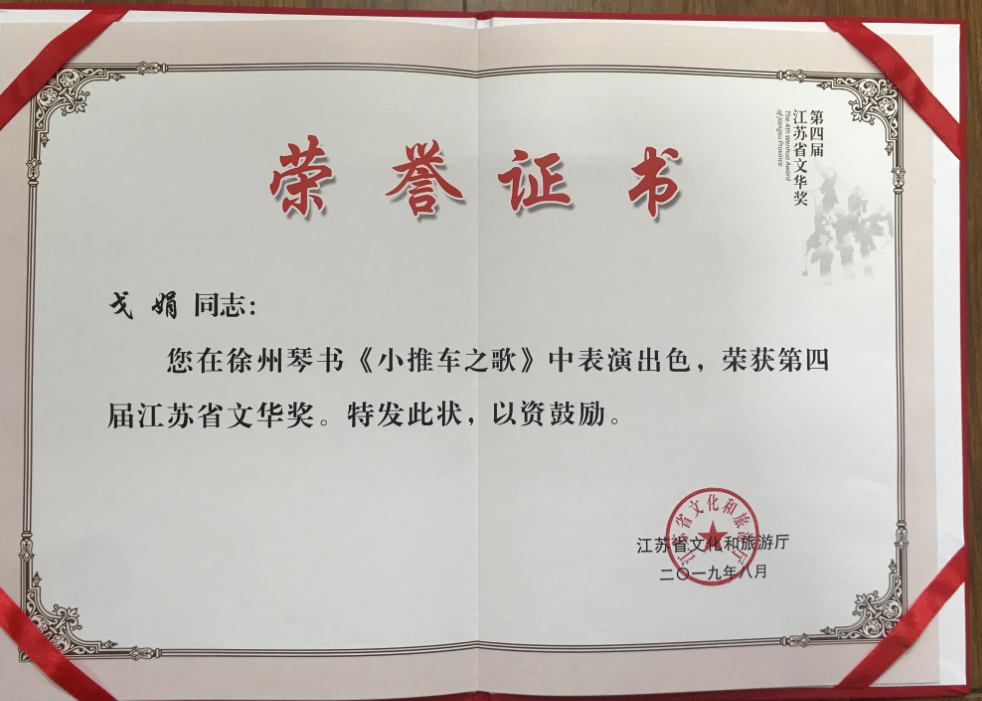 第四届
江苏省文华奖
The 4th Wenhua Award
of Jiangsu Province
荣誉证书
戈 娟 同志：
您在徐州琴书《小推车之歌》中表演出色，荣获第四
届江苏省文华奖。特发此状，以资鼓励。
江苏省文化和旅游厅
江苏省文化和旅游厅
二〇一九年八月